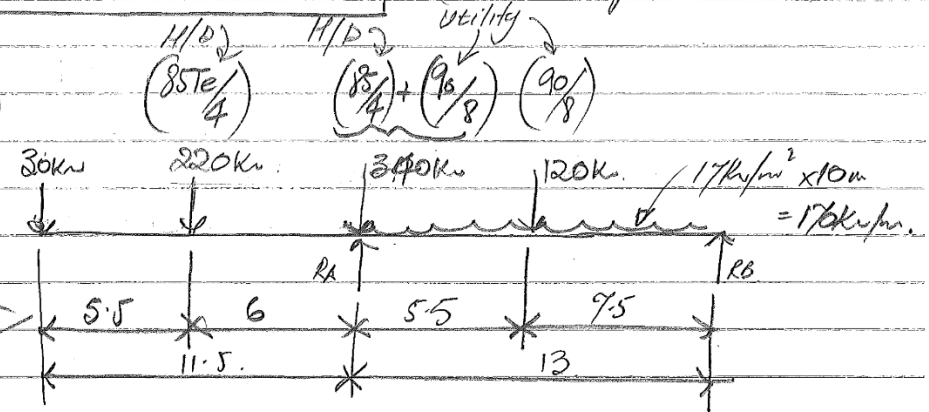 utility
H/D H/D
(85Te/4) (85/4) + (90/8) (90/8)
30Kn 220Kn. 340Kn 120Kn. 17Kn/m² x10m
= 170Kn/m.
RA RB
5.5 6 5.5 7.5
11.5. 13